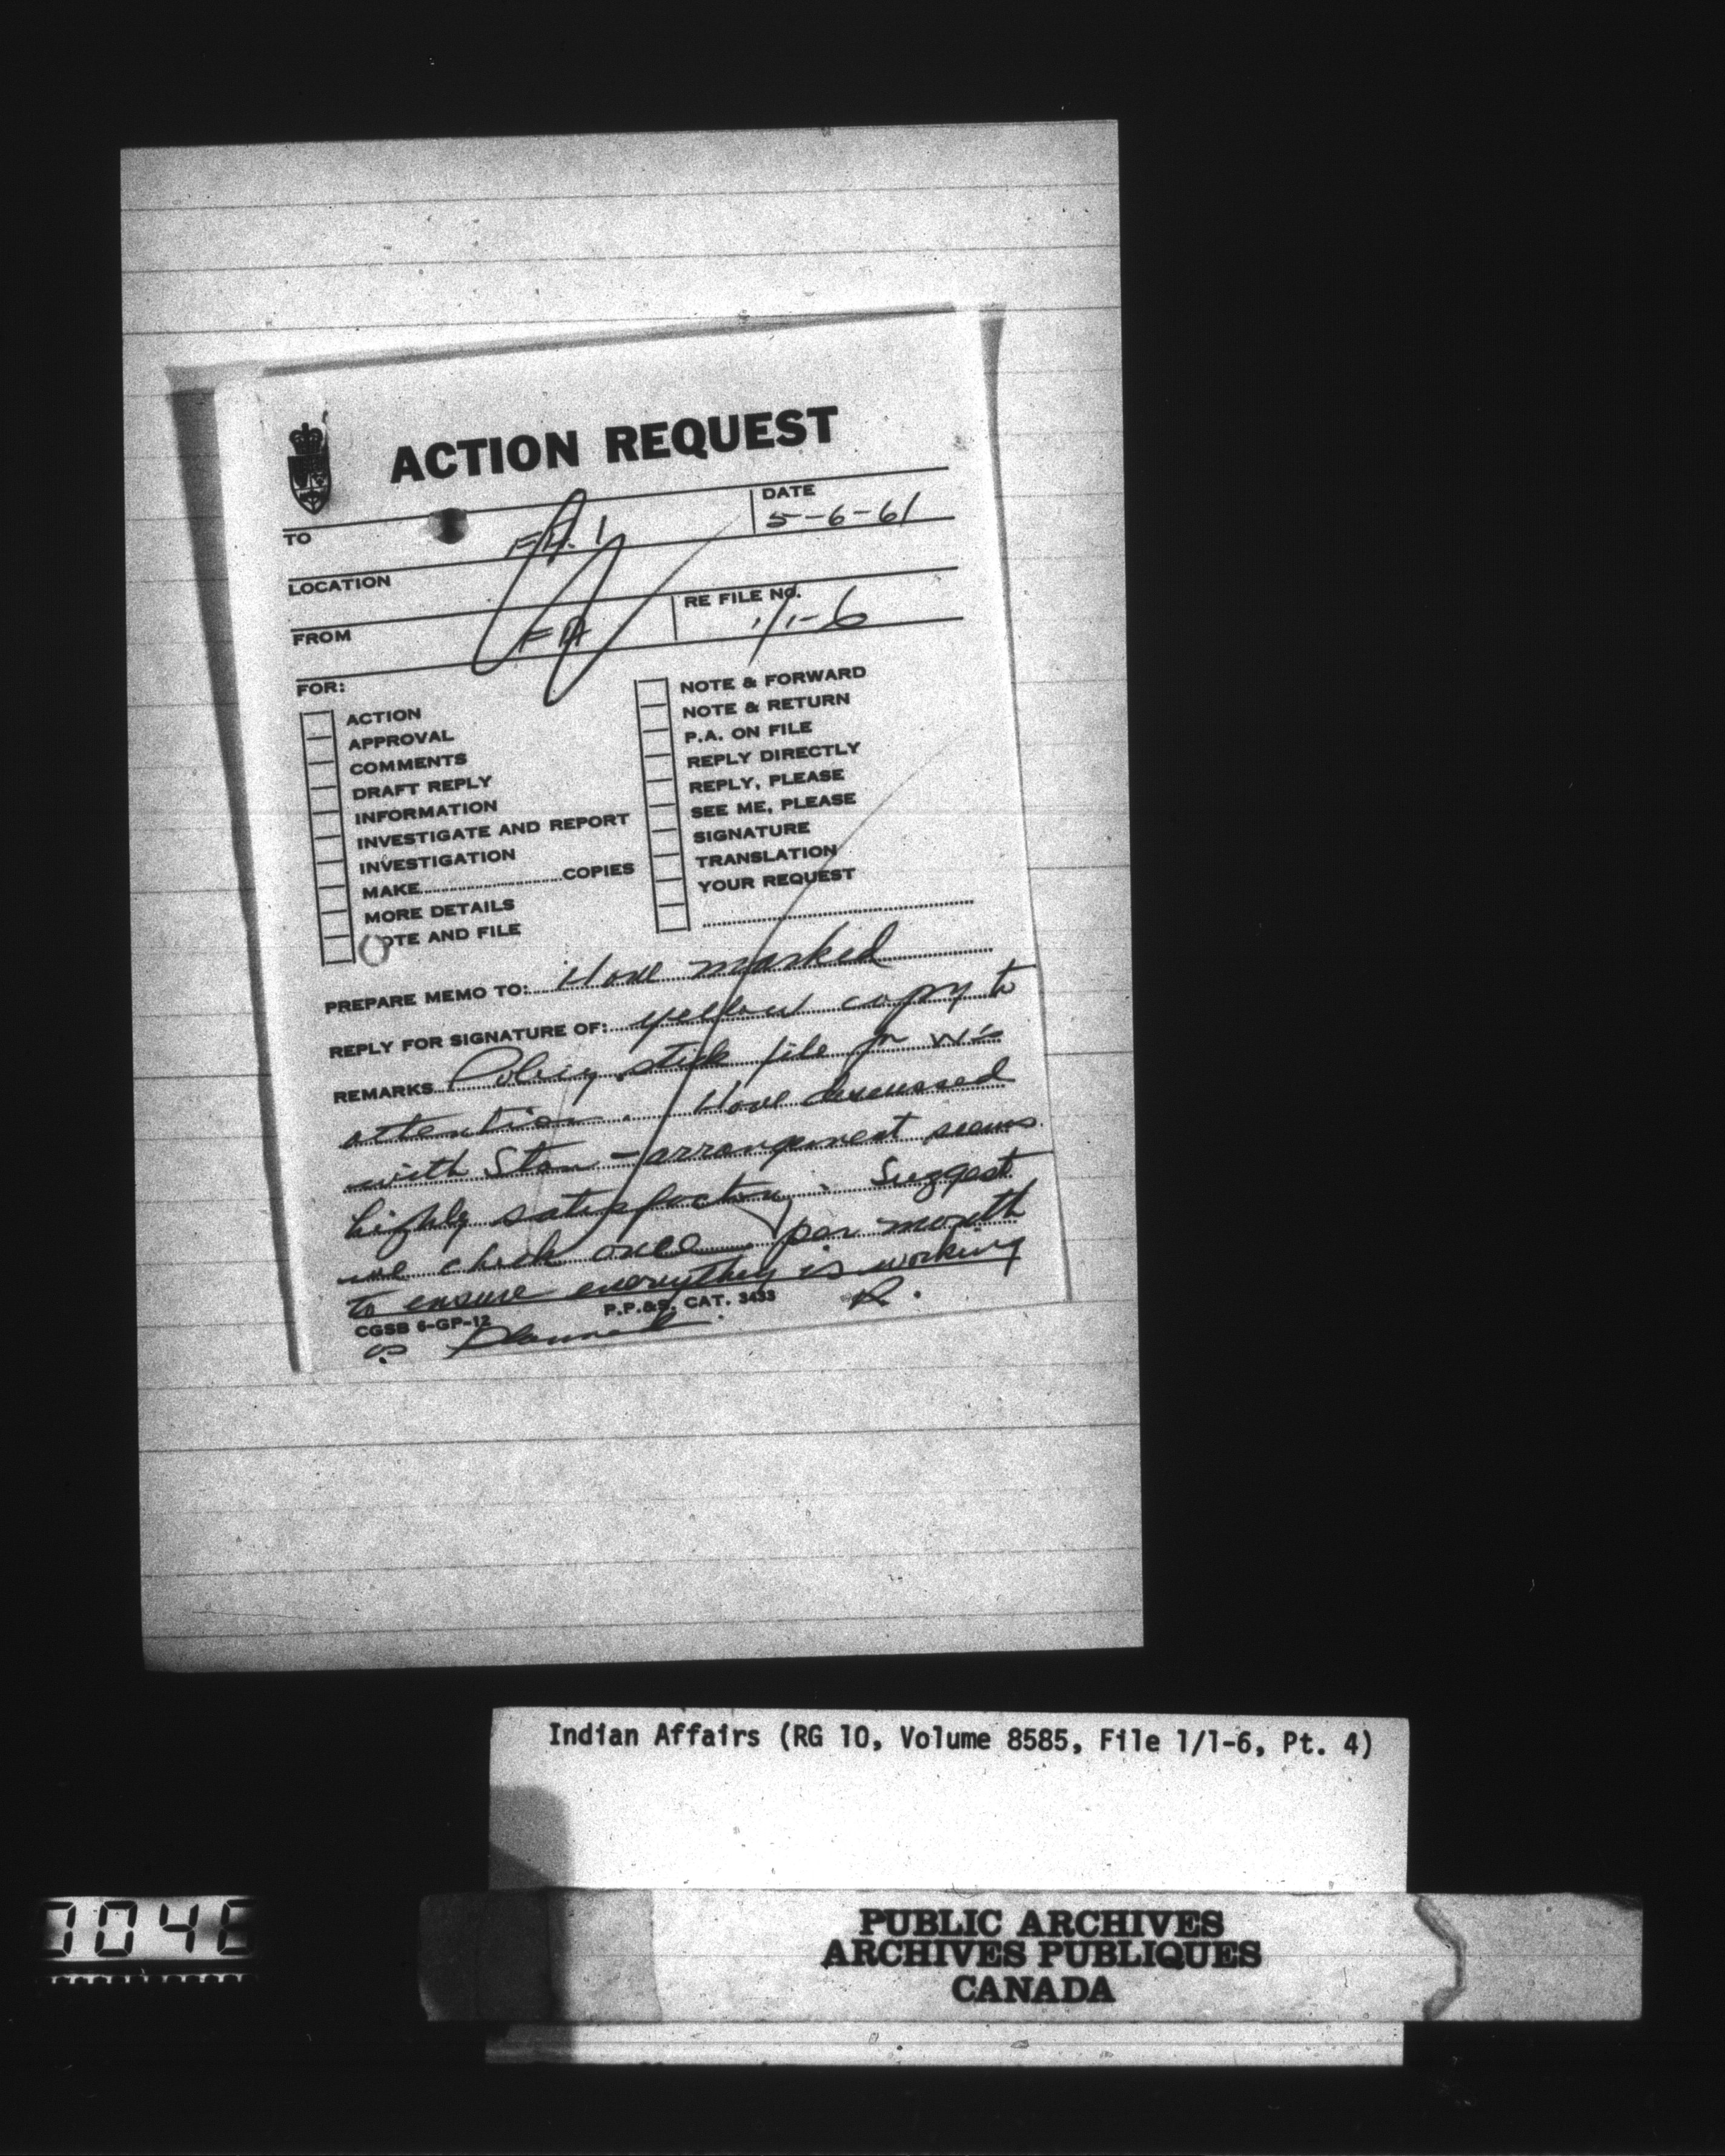 ACTION REQUEST
TO FA.1 DATE 5-6-61
LOCATION
FROM FA RE FILE NO. 1/1-6
FOR:
ACTION
APPROVAL
COMMENTS
DRAFT REPLY
INFORMATION
INVESTIGATE AND REPORT
INVESTIGATION
MAKE COPIES
MORE DETAILS
NOTE AND FILE
NOTE & FORWARD
NOTE & RETURN
P.A. ON FILE
REPLY DIRECTLY
REPLY, PLEASE
SEE ME, PLEASE
SIGNATURE
TRANSLATION
YOUR REQUEST
PREPARE MEMO TO: Have marked
REPLY FOR SIGNATURE OF: yellow copy to
REMARKS Policy stick file for W's
attention. Have discussed
with Stan - arrangement seems
highly satisfactory. Suggest
we check once per month
to ensure everything is working
CGSB 6-GP-12 P.P.&S. CAT. 3433 R.
as planned.
Indian Affairs (RG 10, Volume 8585, File 1/1-6, Pt. 4)
PUBLIC ARCHIVES
ARCHIVES PUBLIQUES
CANADA